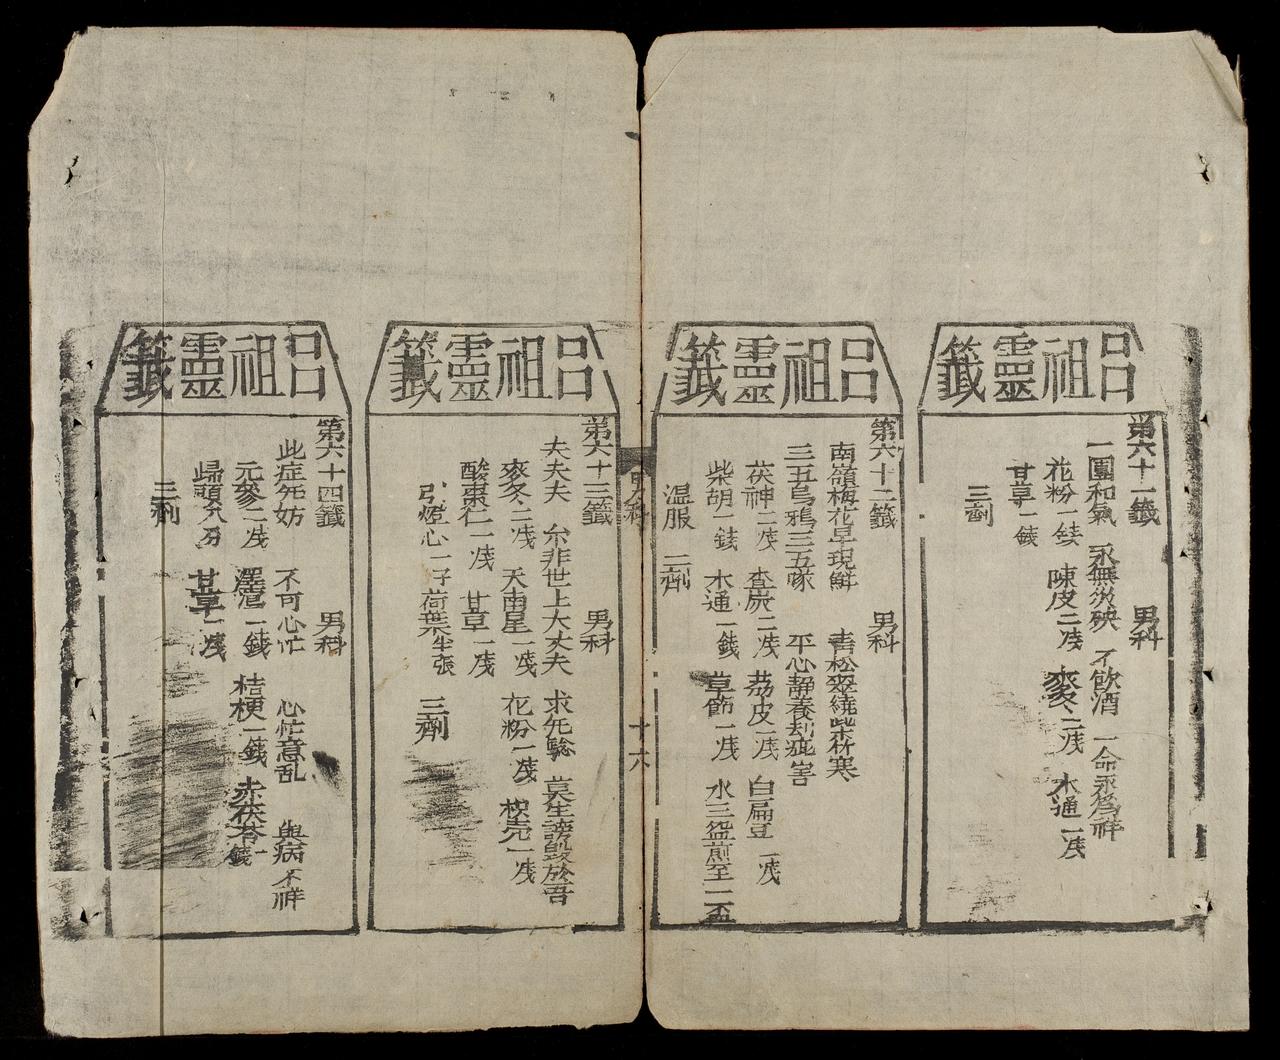 呂祖靈籤
第六十一籤 男科
一團和氣 永無災殃 不飲酒 一命永為祥
花粉一錢 陳皮二戔 麥冬二戔 木通一戔
甘草一錢
三劑
呂祖靈籤
第六十二籤 男科
南嶺梅花早現鮮 青松翠繞柴竹寒
三五烏鴉三五隊 平心靜養刦疵害
茯神二戔 查炭二戔 荔皮一戔 白扁豆一戔
柴胡一錢 木通一錢 草節一戔 水三盌煎至一盃
温服 二劑
男科
十六
呂祖靈籤
第六十三籤 男科
夫夫夫 尔非世上大丈夫 求无騐 莫生謗毀於吾
麥冬二戔 天南星一戔 花粉一戔 枳壳一戔
酸棗仁一戔 甘草一戔
引燈心一子荷葉半張 三劑
呂祖靈籤
第六十四籤 男科
此症无妨 不可心忙 心忙意乱 與病不祥
元參二戔 澤瀉一錢 桔梗一錢 赤茯苓一錢
歸頭八分 甘草一戔
三劑